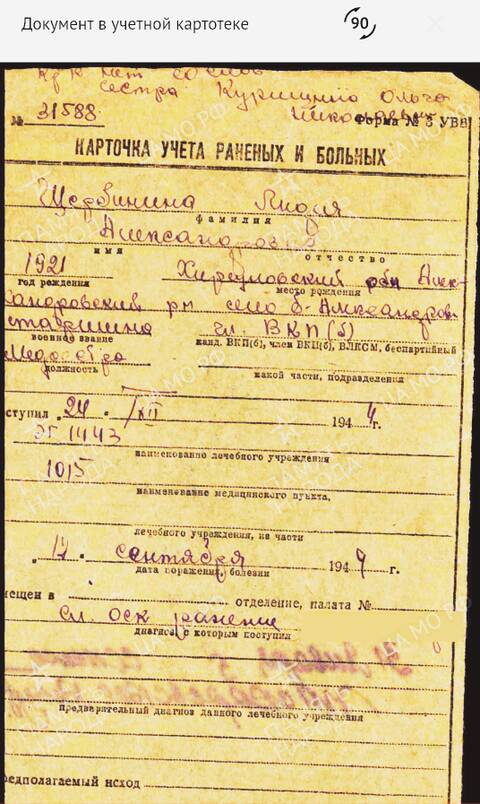 Документ в учетной картотеке
90
сестра Курицына Ольга
№ 31588
Форма № 3 УВВ
КАРТОЧКА УЧЕТА РАНЕНЫХ И БОЛЬНЫХ
Щербинина Лидия
фамилия
Александровна
имя отчество
1921 Херсуновский рбн Алек-
год рождения место рождения
сандровский рн село Б-Александров
старшина чл. ВКП(б)
военное звание канд. ВКП(б), член ВКП(б), ВЛКСМ, беспартийный
Медсестра
должность какой части, подразделения
ступил „24" /XII 1944г.
ЭГ 1443
наименование лечебного учреждения
1015
наименование медицинского пункта,
лечебного учреждения, из части
„12" сентября 1944 г.
дата поражения, болезни
мещен в отделение, палата №
сл. оск ранение
диагноз с которым поступил
предварительный диагноз данного лечебного учреждения
редполагаемый исход